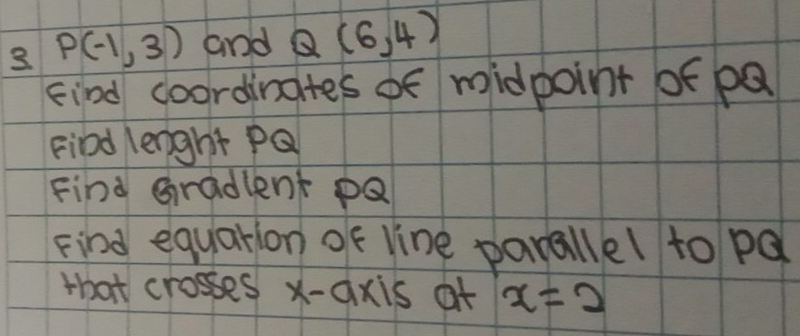 3. P(-1,3) and Q (6,4)
Find coordinates of midpoint of PQ
Find lenght PQ
Find Gradient PQ
Find equation of line parallel to PQ
that crosses x-axis at x=2